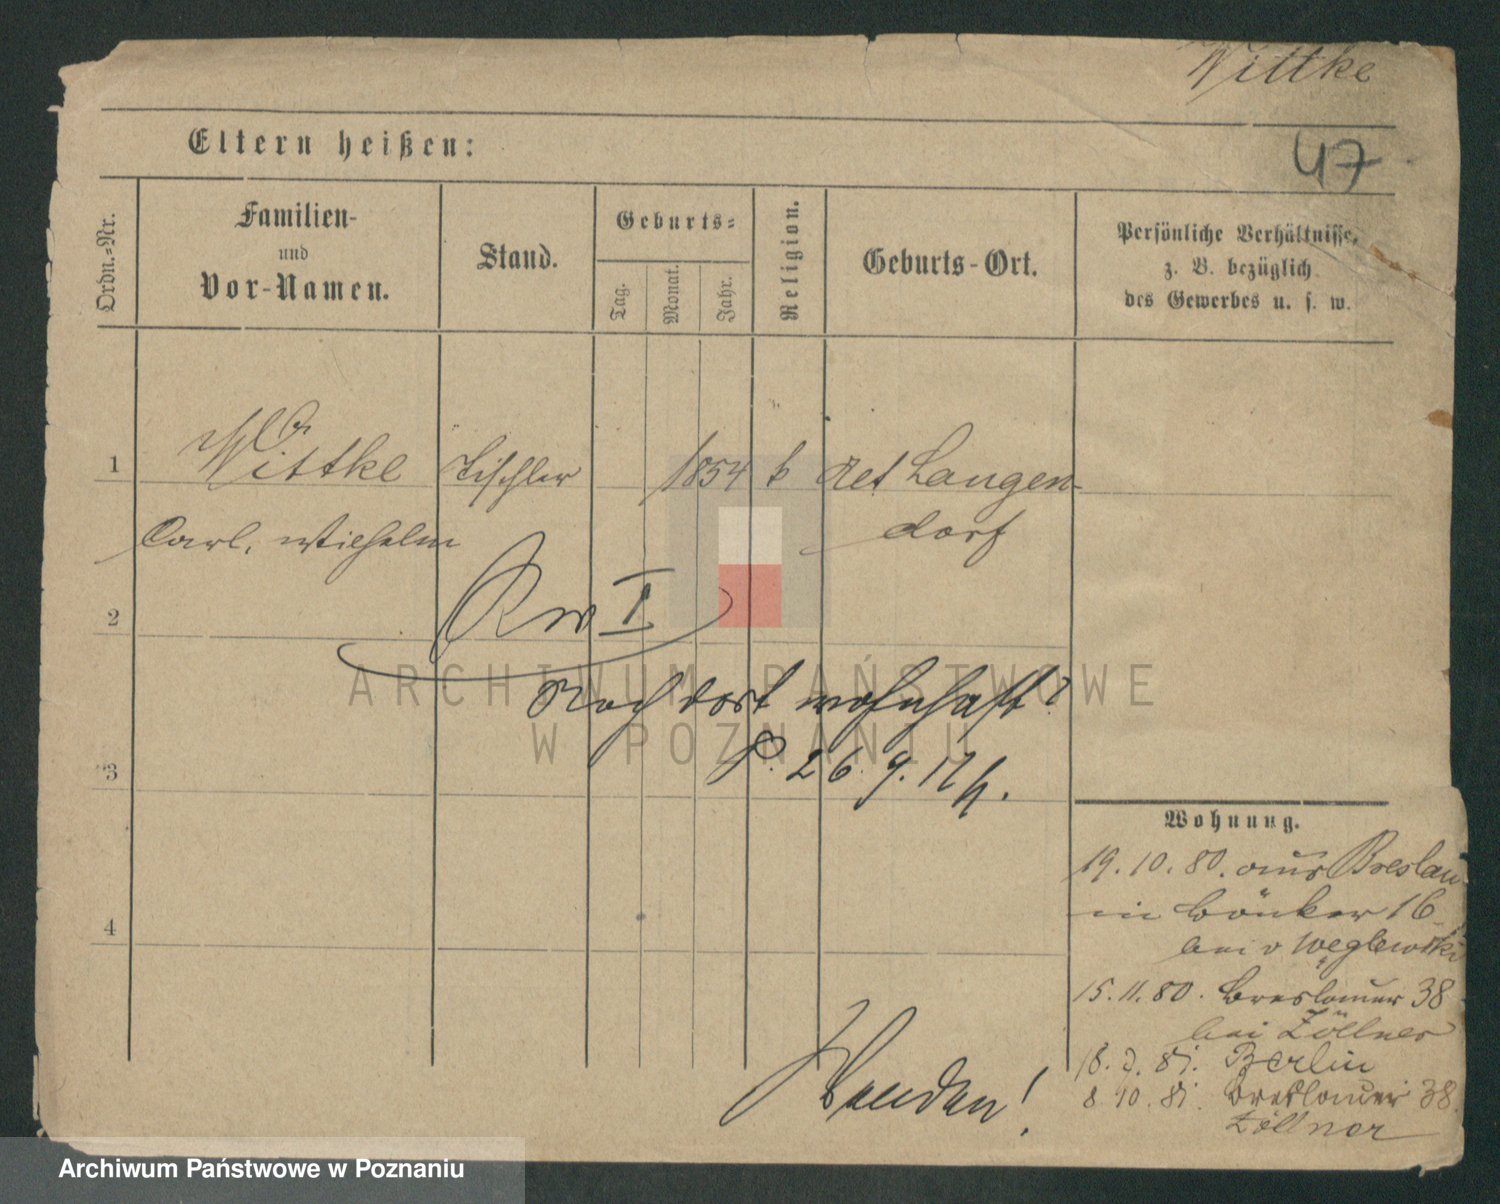 Wittke
47
Eltern heißen:
Ordn.-Nr.
Familien-
und
Vor-Namen.
Stand.
Geburts-
Tag.
Monat.
Jahr.
Religion.
Geburts-Ort.
Persönliche Verhältnisse,
z. B. bezüglich
des Gewerbes u. s. w.
1
Wittke Tischler 1854 k Langen-
Carl, Wilhelm dorf
2
I
Noch dort wohnhaft?
P. 26. 9.
3
4
Wohnung.
19. 10. 80. aus Breslau
in Bänker 16
bei v Węglewski
15. 11. 80. Breslauer 38
bei Zöllner
81. Berlin
8. 10. 81. Breslauer 38
Zöllner
Wenden!
ARCHIWUM PAŃSTWOWE
W POZNANIU
Archiwum Państwowe w Poznaniu